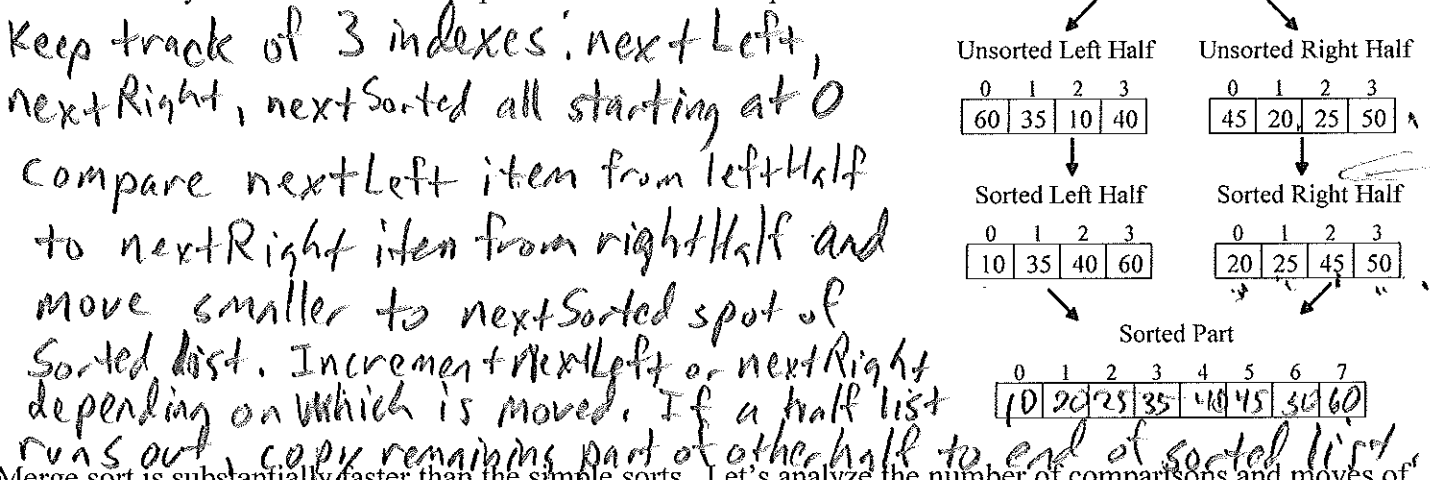 Keep track of 3 indexes: nextLeft,
nextRight, nextSorted all starting at 0
Compare nextLeft item from leftHalf
to nextRight item from rightHalf and
move smaller to nextSorted spot of
Sorted list. Increment nextLeft or nextRight
depending on which is moved. If a half list
runs out, copy remaining part of other half to end of sorted list.
Unsorted Left Half Unsorted Right Half
0 1 2 3 0 1 2 3
60 35 10 40 45 20 25 50
Sorted Left Half Sorted Right Half
0 1 2 3 0 1 2 3
10 35 40 60 20 25 45 50
Sorted Part
0 1 2 3 4 5 6 7
10 20 25 35 40 45 50 60
Merge sort is substantially faster than the simple sorts. Let's analyze the number of comparisons and moves of